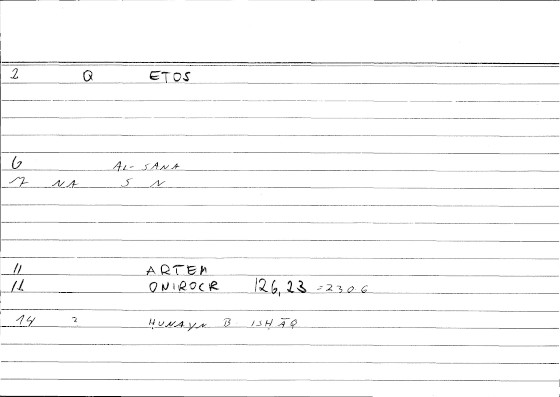 2 Q ETOS
6 AL-SANA
7 NA S N
11 ARTEM
12 ONIROCR 126,23 =230.6
14 2 HUNAYN B ISHĀQ